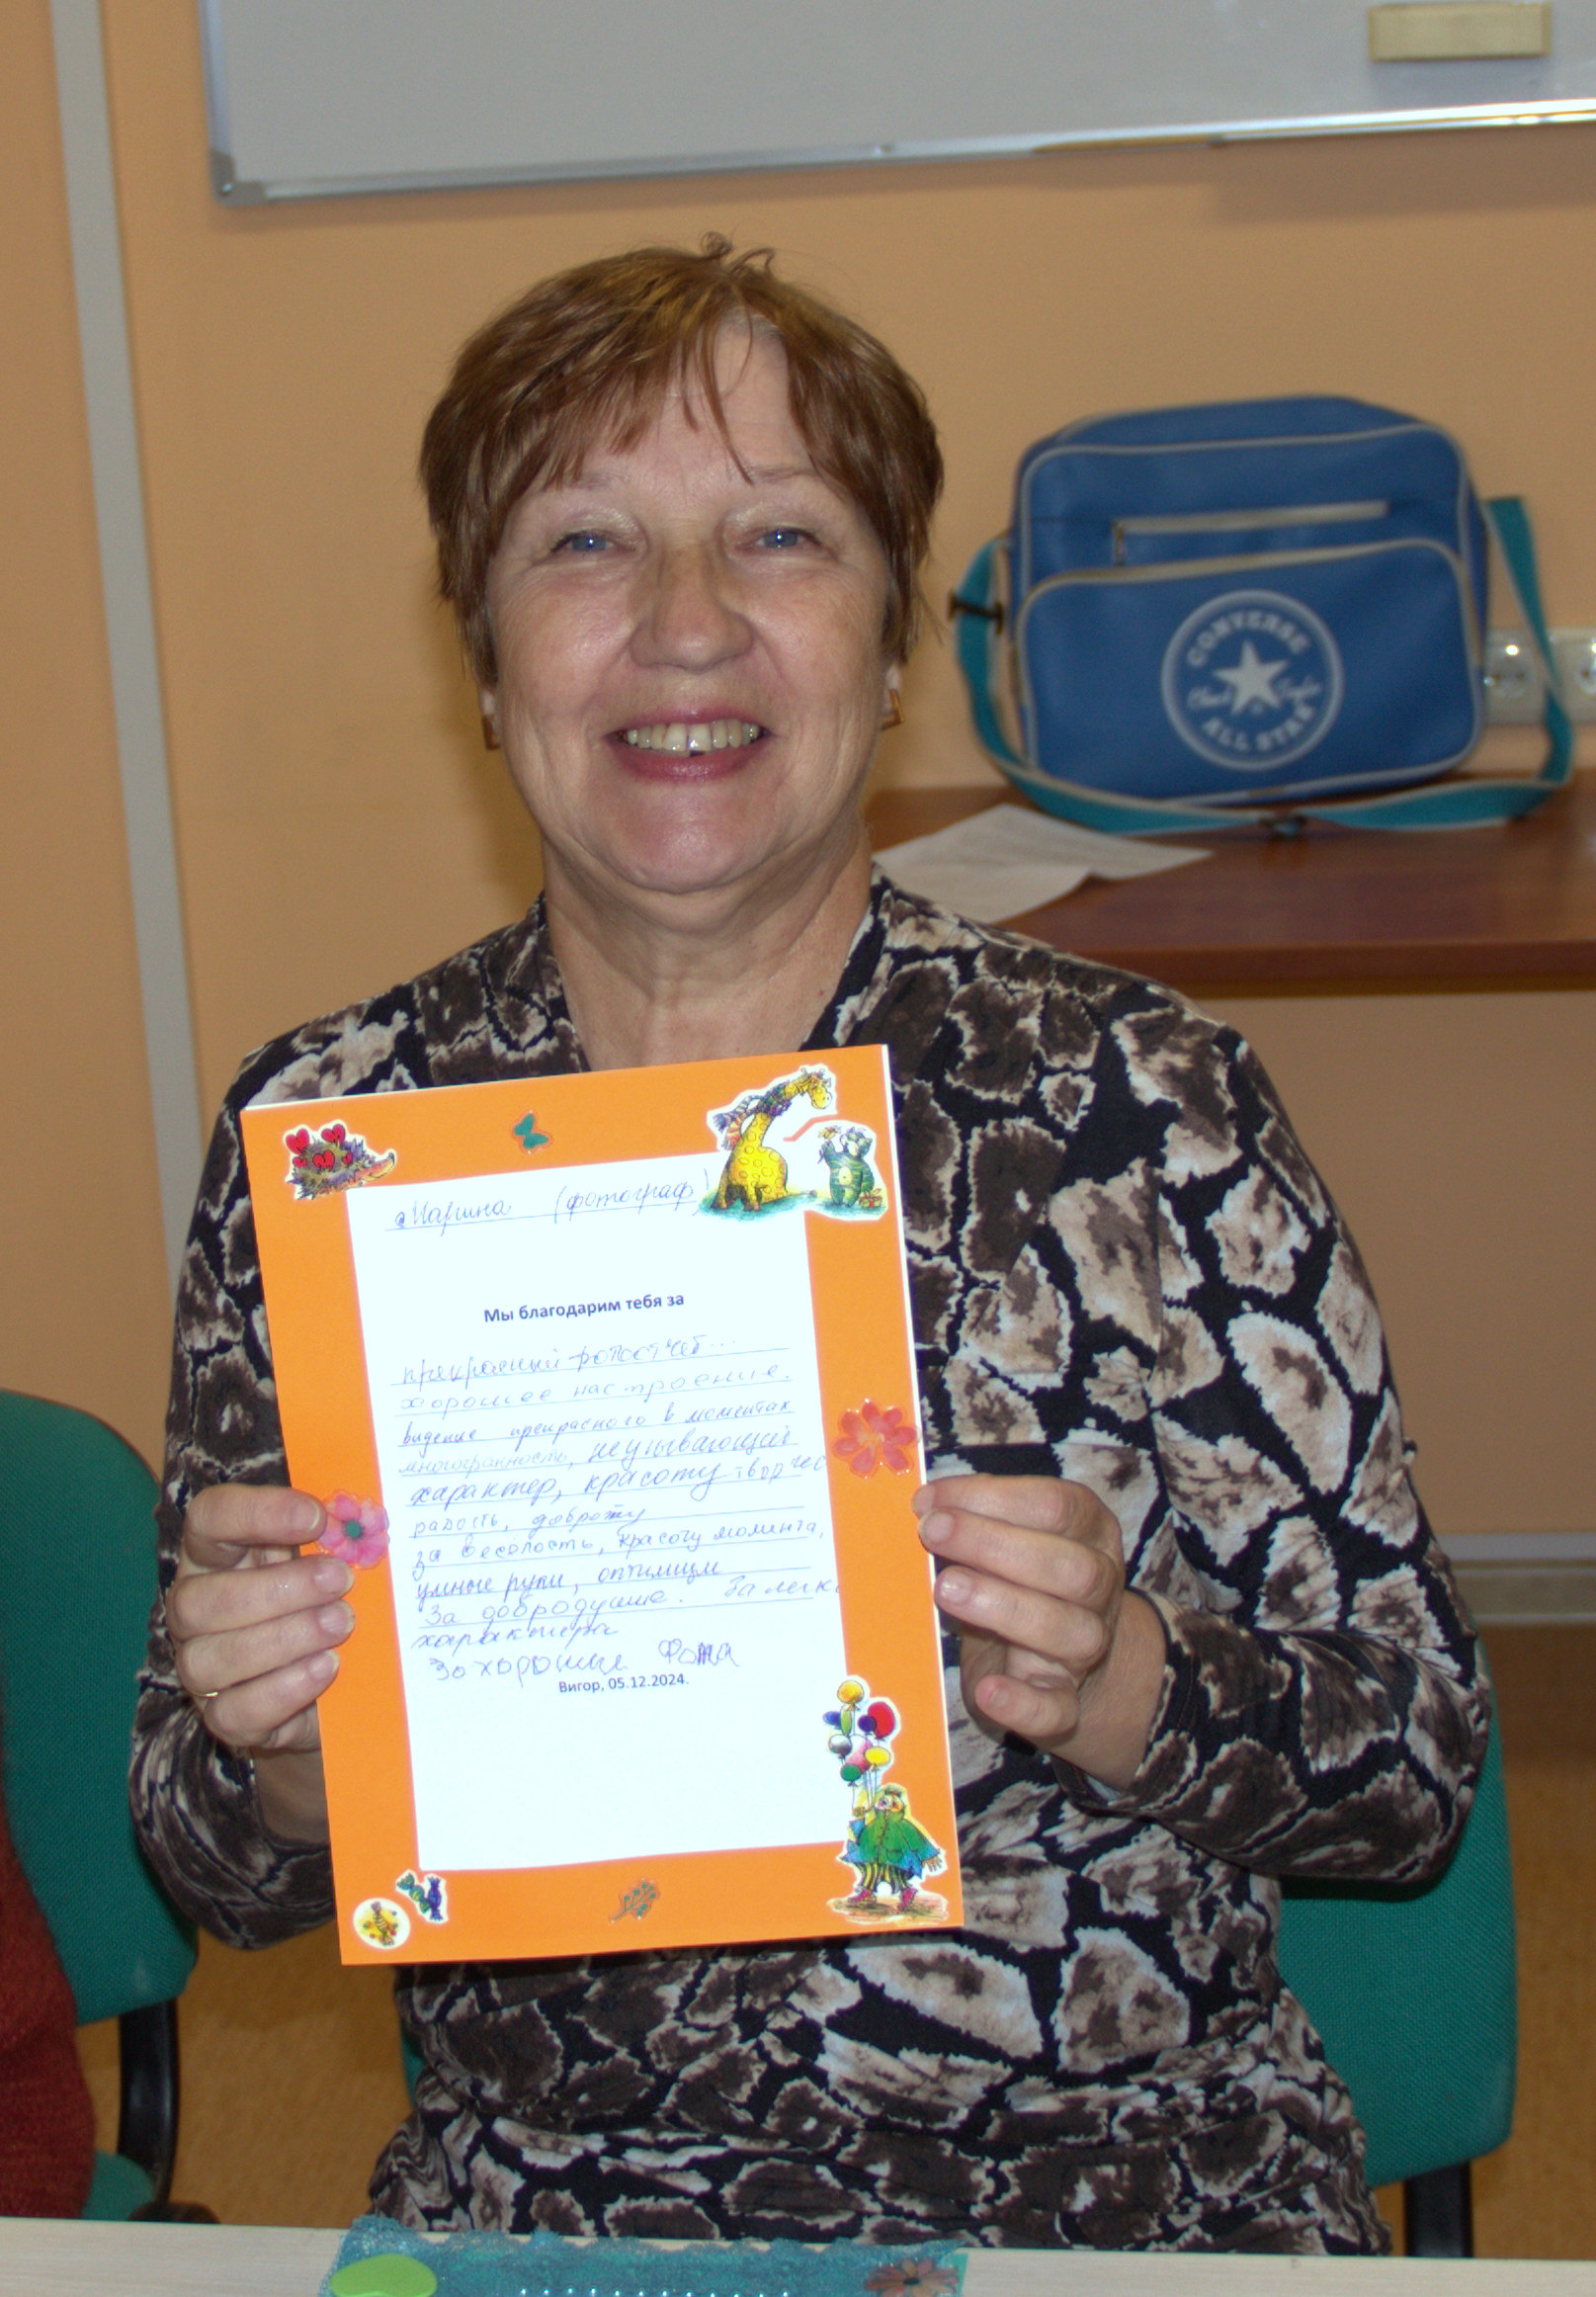 CONVERSE
Chuck Taylor
ALL STAR
Марина (фотограф)
Мы благодарим тебя за
прекрасный фотоотчет...
хорошее настроение.
видение прекрасного в моментах
многогранность, неунывающий
характер, красоту творчес
радость, доброту
за веселость, красоту момента,
умные руки, оптимизм
За добродушие. За легк
характера
За хорошие фота
Вигор, 05.12.2024.